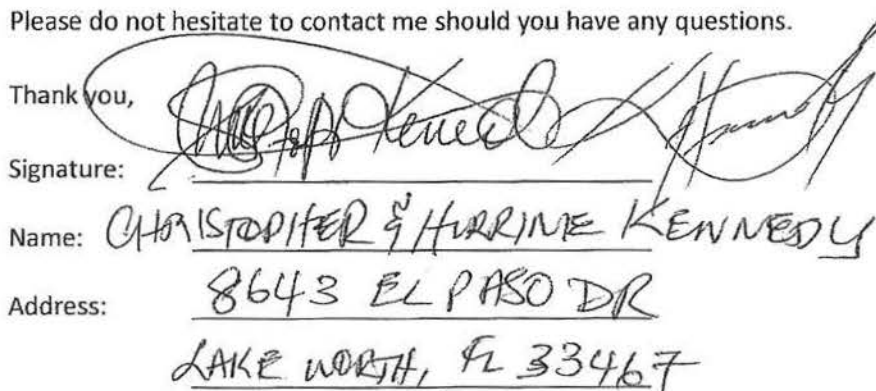 Please do not hesitate to contact me should you have any questions.
Thank you,
Signature:
Name: CHRISTOPHER & HURRINE KENNEDY
Address: 8643 EL PASO DR
LAKE WORTH, FL 33467